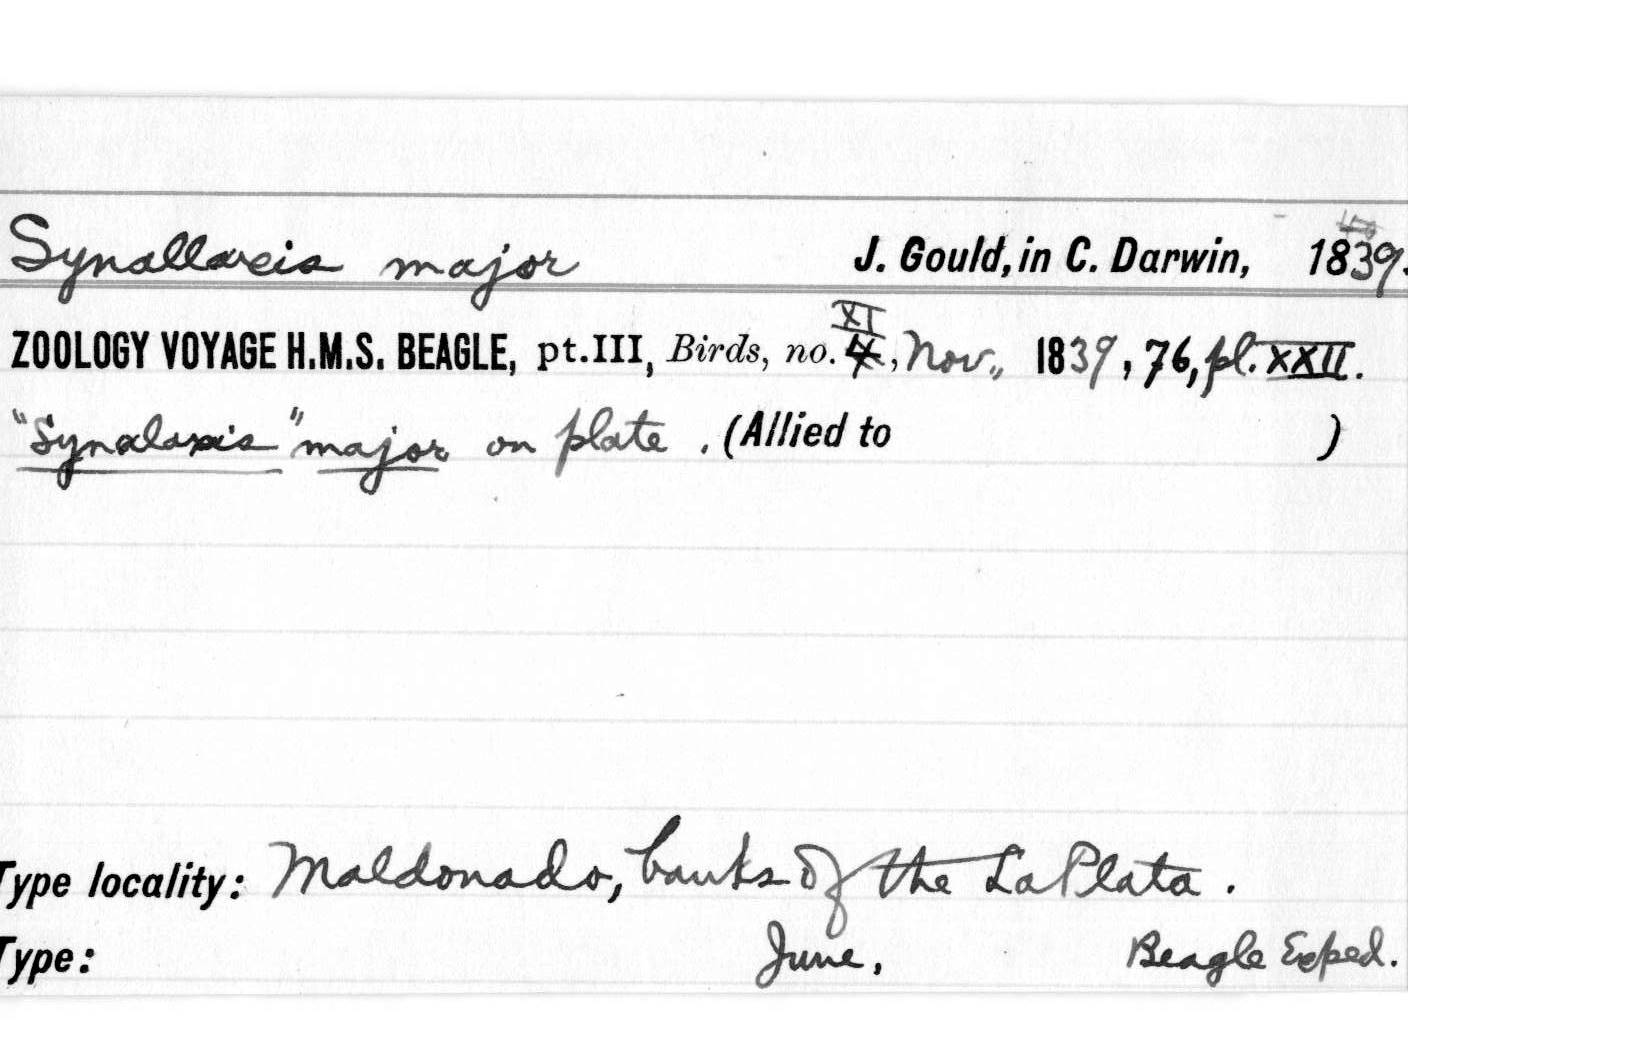 Synallaxis major J. Gould, in C. Darwin, 1839.
ZOOLOGY VOYAGE H.M.S. BEAGLE, pt.III, Birds, no. XI, Nov., 1839, 76, pl. XXII.
"Synalaxis" major on plate. (Allied to )
Type locality: Maldonado, banks of the La Plata.
Type: June, Beagle Exped.